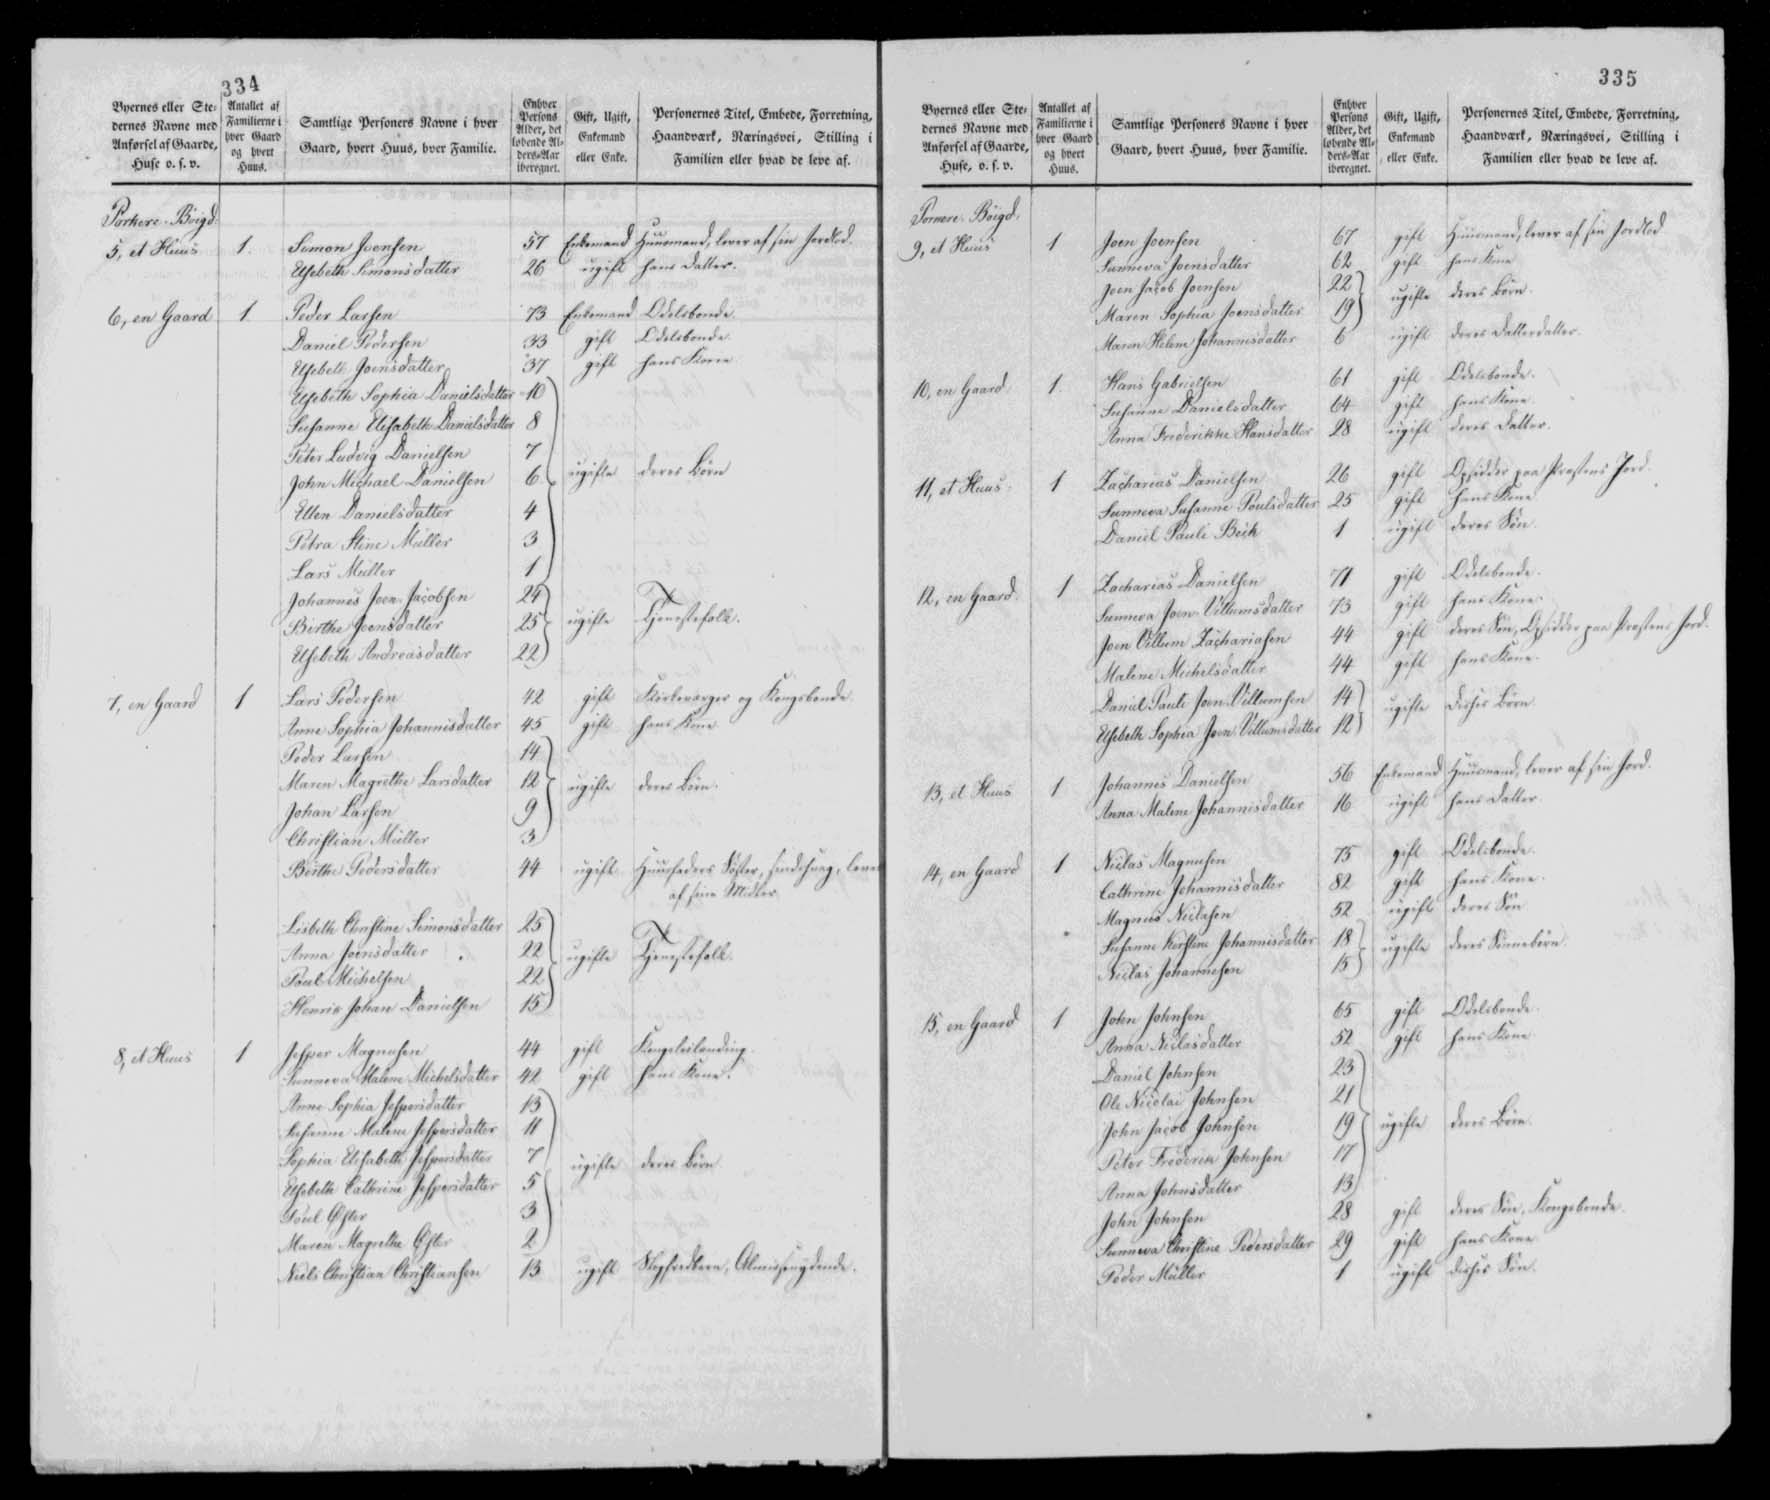 334
Byernes eller Ste-
dernes Navne med
Anførsel af Gaarde,
Huse o. s. v.
Antallet af
Familierne i
hver Gaard
og hvert
Huus.
Samtlige Personers Navne i hver
Gaard, hvert Huus, hver Familie.
Enhver
Persons
Alder, det
løbende Al-
ders-Aar
iberegnet.
Gift, Ugift,
Enkemand
eller Enke.
Personernes Titel, Embede, Forretning,
Haandværk, Næringsvei, Stilling i
Familien eller hvad de leve af.
Porkere-Böigd.
5, et Huus 1. Simon Joensen 57 Enkemand Huusmand, lever af sin Jordlod.
Elsebeth Simonsdatter 26 ugift hans Datter.
6, en Gaard 1. Peder Larsen 73 Enkemand Odelsbonde.
Daniel Pedersen 33 gift Odelsbonde.
Elsebeth Joensdatter 37 gift hans Kone
Elsebeth Sophia Danielsdatter 10
Susanne Elisabeth Danielsdatter 8
Peter Ludvig Danielsen 7
John Michael Danielsen 6 ugifte deres Børn
Ellen Danielsdatter 4
Petra Stine Müller 3
Lars Müller 1
Johannes Joen-Jacobsen 24
Birthe Joensdatter 25 ugifte Tjenestefolk.
Elsebeth Andreasdatter 22
7, en Gaard 1 Lars Pedersen 42 gift Kirkeværger og Kongsbonde
Anne Sophia Johannisdatter 45 gift hans Kone
Peder Larsen 14
Maren Magrethe Larsdatter 12 ugifte deres Børn.
Johan Larsen 9
Christian Müller 3
Birthe Pedersdatter 44 ugift Huusfaders Søster, sindssvag, lever
af sine Midler
Lisbeth Christine Simonsdatter 25
Anna Joensdatter 22 ugifte Tjenestefolk.
Poul Michelsen 22
Henrik Johan Danielsen 15
8, et Huus 1 Jesper Magnusen 44 gift
Sunneva Malene Michelsdatter 42 gift hans Kone.
Anne Sophia Jespersdatter 13
Susanne Malene Jespersdatter 11
Sophia Elisabeth Jespersdatter 7 ugifte deres Børn
Elsebeth Cathrine Jespersdatter 5
Poul Øster 3
Maren Magrethe Øster 2
Niels Christian Christiansen 13 ugift Almissenydende.
335
Byernes eller Ste-
dernes Navne med
Anførsel af Gaarde,
Huse, o. s. v.
Antallet af
Familierne i
hver Gaard
og hvert
Huus.
Samtlige Personers Navne i hver
Gaard, hvert Huus, hver Familie.
Enhver
Persons
Alder, det
løbende Al-
ders-Aar
iberegnet.
Gift, Ugift,
Enkemand
eller Enke.
Personernes Titel, Embede, Forretning,
Haandværk, Næringsvei, Stilling i
Familien eller hvad de leve af.
Böigd.
9, et Huus 1 Joen Joensen 67 gift Huusmand, lever af sin Jordlod
Sunneva Joensdatter 62 gift hans Kone
Joen Jacob Joensen 22
Maren Sophia Joensdatter 19 ugifte deres Børn.
Maren Helene Johannisdatter 6 ugift deres Datterdatter.
10, en Gaard 1. Hans Gabrielsen 61 gift Odelsbonde.
Susanne Danielsdatter 64 gift hans Kone.
Anna Frederikke Hansdatter 28 ugift deres Datter.
11, et Huus 1 Zacharias Danielsen 26 gift Opsidder paa Præstens Jord.
Sunneva Susanne Poulsdatter 25 gift hans Kone
Daniel Pauli Beck 1 ugift deres Søn.
12, en Gaard. 1 Zacharias Danielsen 71 gift Odelsbonde.
Sunneva Joen-Villumsdatter 73 gift hans Kone.
Joen Villum Zachariasen 44 gift deres Søn, Opsidder paa Præstens Jord.
Malene Michelsdatter 44 gift hans Kone.
Daniel Pauli Joen-Villumsen 14
Elsebeth Sophia Joen-Villumsdatter 12 ugifte disses Børn
13, et Huus 1 Johannes Danielsen 56 Enkemand Huusmand, lever af sin Jord.
Anna Malene Johannisdatter 16 ugift hans Datter.
14, en Gaard 1 Niclas Magnusen 75 gift Odelsbonde.
Cathrine Johannisdatter 82 gift hans Kone.
Magnus Niclasen 52 ugift deres Søn
Susanne Kerstine Johannisdatter 18
Niclas Johannesen 15 ugifte deres Sønnebørn.
15, en Gaard 1 John Johnsen 65 gift Odelsbonde.
Anna Niclasdatter 52 gift hans Kone
Daniel Johnsen 23
Ole Nicolai Johnsen 21
John Jacob Johnsen 19 ugifte deres Børn.
Peter Frederik Johnsen 17
Anna Johnsdatter 13
John Johnsen 28 gift deres Søn, Kongsbonde.
Sunneva Christine Pedersdatter 29 gift hans Kone
Peder Müller 1 ugift disses Søn.